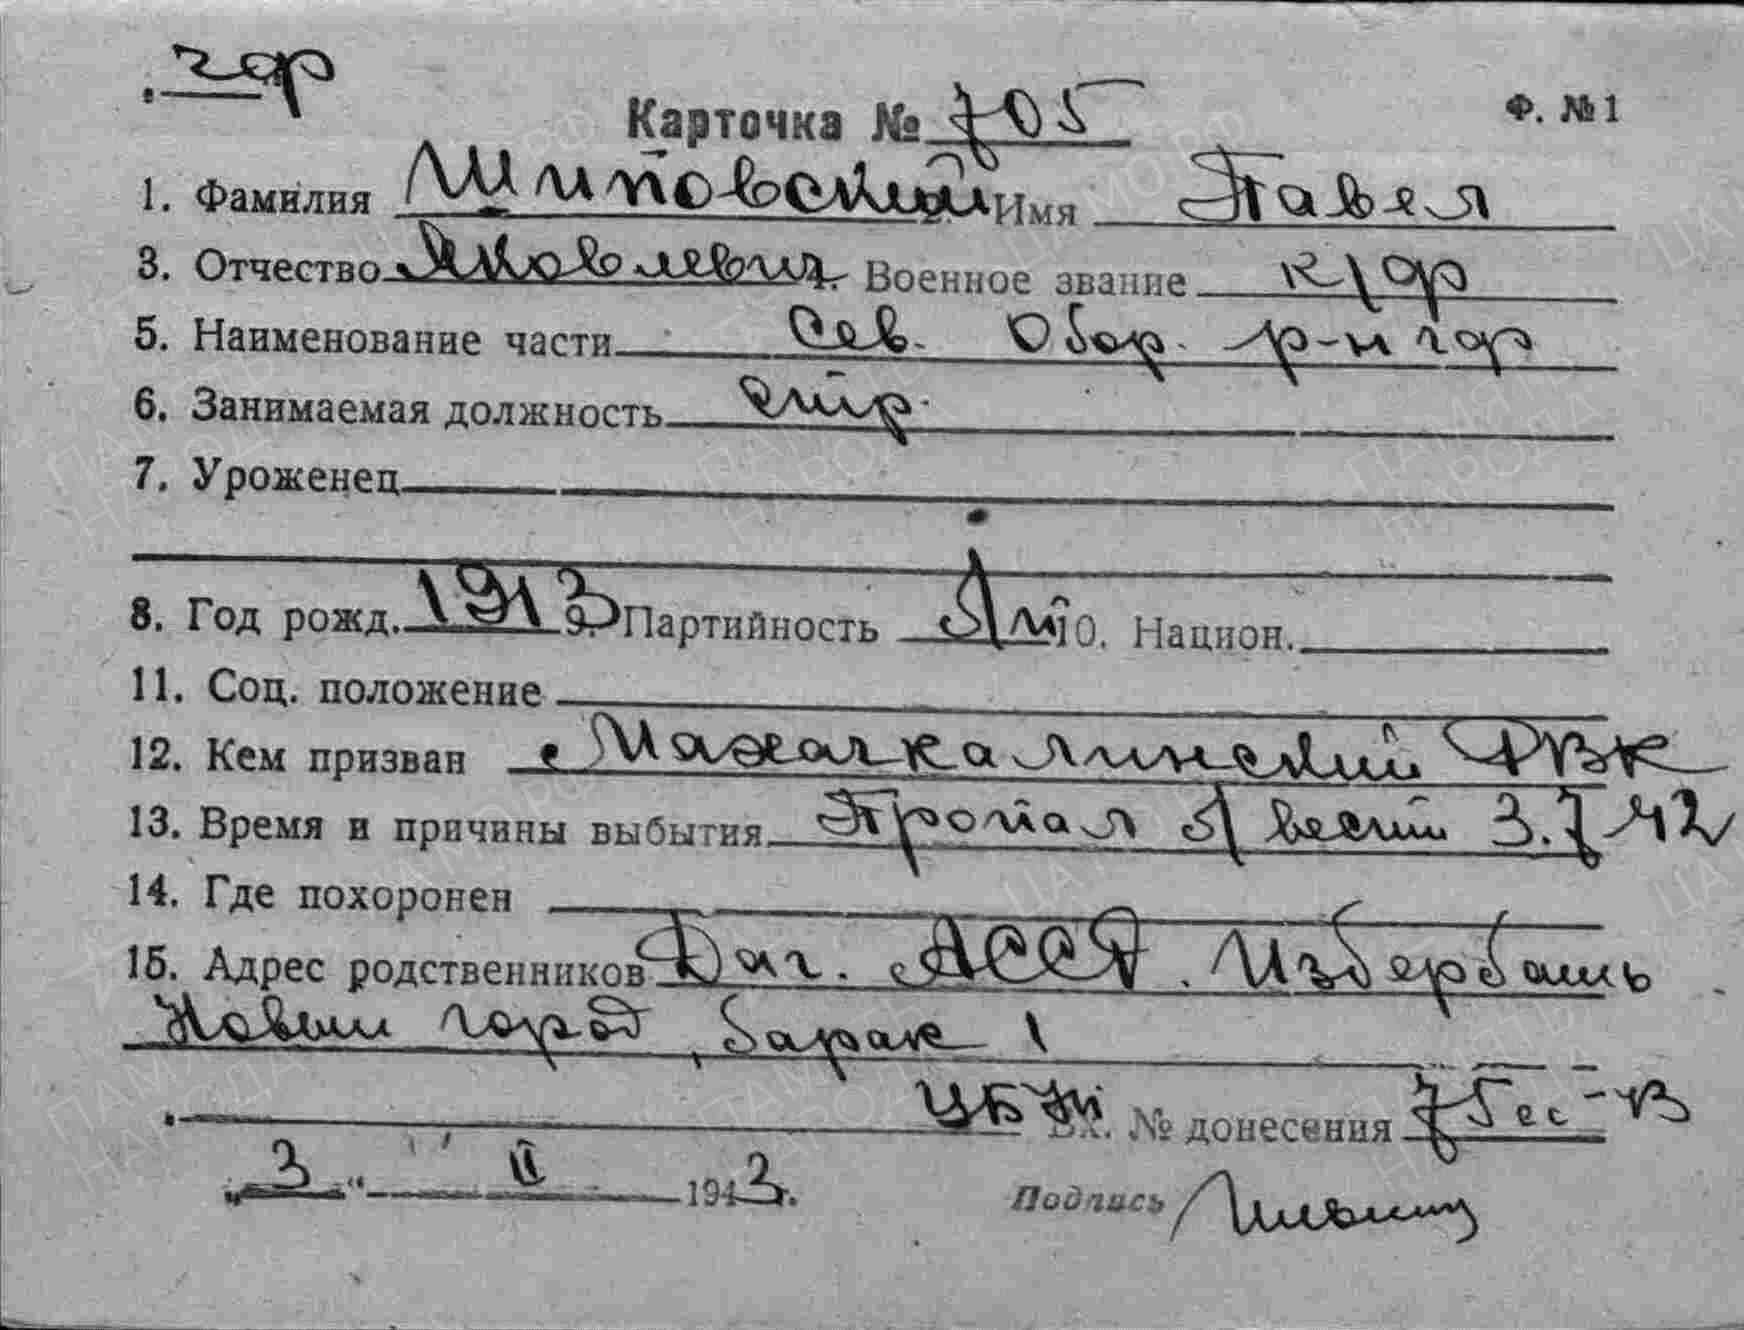 чдр
Карточка № 705 Ф. №1
1. Фамилия Шиповский Имя Павел
3. Отчество Яковлевич. Военное звание к/др
5. Наименование части Сев. Обор. р-н чдр
6. Занимаемая должность стр.
7. Уроженец
8. Год рожд. 1913 9. Партийность 10. Национ.
11. Соц. положение
12. Кем призван Махачкалинский РВК
13. Время и причины выбытия Пропал б/вести 3.7 42
14. Где похоронен
15. Адрес родственников Даг. АССР. Избербашь
Новый город, барак 1
Вх. № донесения 75
„3“ II 1943г.
Подпись